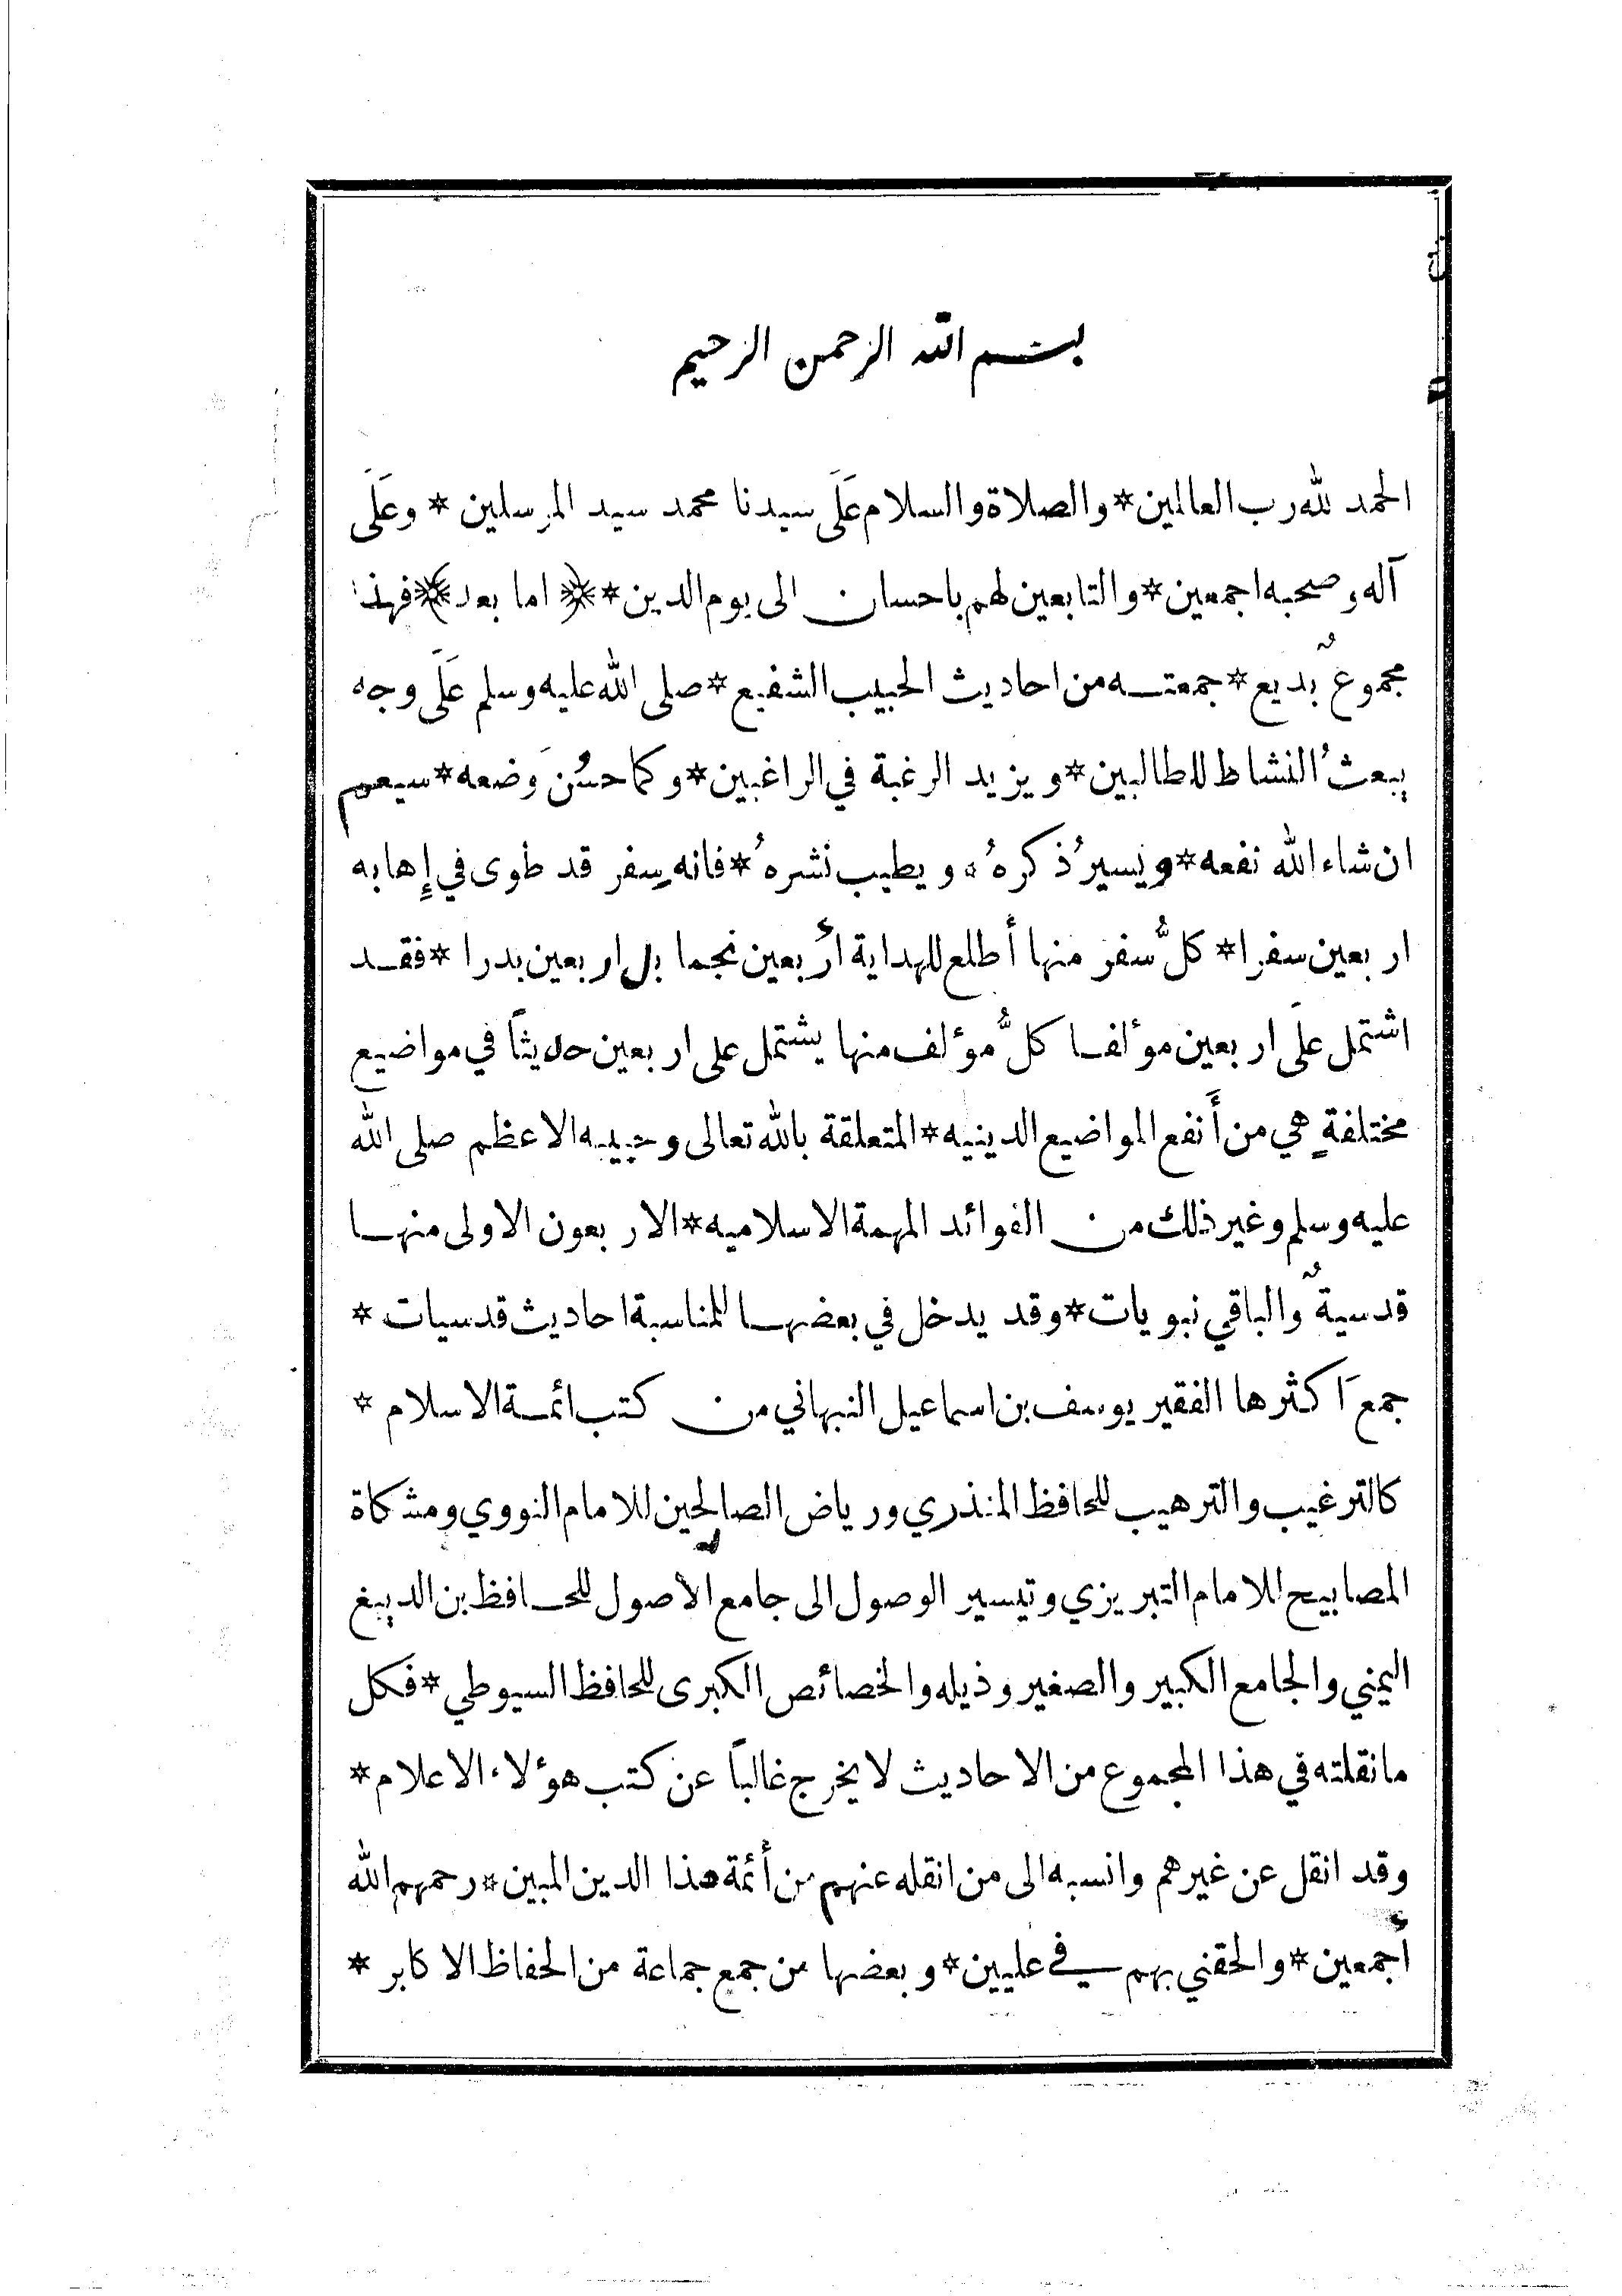 بسم الله الرحمن الرحيم
الحمد لله رب العالمين * والصلاة والسلام عَلَى سيدنا محمد سيد المرسلين * وعَلَى
آله وصحبه اجمعين * والتابعين لهم باحسان الى يوم الدين * ﴿ اما بعد ﴾ فهذا
مجموعٌ بديع * جمعته من احاديث الحبيب الشفيع * صلى الله عليه وسلم عَلَى وجه
يبعثُ النشاط للطالبين * ويزيد الرغبة في الراغبين * وكما حسُنَ وضعه * سيعم
ان شاء الله نفعه * ويسيرُ ذكرهُ * ويطيب نشرهُ * فانه سِفر قد طوى في إِهابه
اربعين سفرا * كلُّ سفر منها أطلع للهداية أربعين نجما بل اربعين بدرا * فقد
اشتمل عَلَى اربعين مؤلفا كلُّ مؤلف منها يشتمل على اربعين حديثاً في مواضيع
مختلفةٍ هي من أَنفع المواضيع الدينيه * المتعلقة بالله تعالى وحبيبه الاعظم صلى الله
عليه وسلم وغير ذلك من الفوائد المهمة الاسلاميه * الاربعون الاولى منها
قدسيةٌ والباقي نبويات * وقد يدخل في بعضها للمناسبة احاديث قدسيات *
جمعَ اكثرها الفقير يوسف بن اسماعيل النبهاني من كتب ائمة الاسلام *
كالترغيب والترهيب للحافظ المنذري ورياض الصالحين للامام النووي ومشكاة
المصابيح للامام التبريزي وتيسير الوصول الى جامع الأصول للحافظ بن الديبغ
اليمني والجامع الكبير والصغير وذيله والخصائص الكبرى للحافظ السيوطي * فكل
ما نقلته في هذا المجموع من الاحاديث لا يخرج غالباً عن كتب هؤلاء الاعلام *
وقد انقل عن غيرهم وانسبه الى من انقله عنهم من أئمة هذا الدين المبين * رحمهم الله
أجمعين * والحقني بهم في عليين * وبعضها من جمع جماعة من الحفاظ الاكابر *